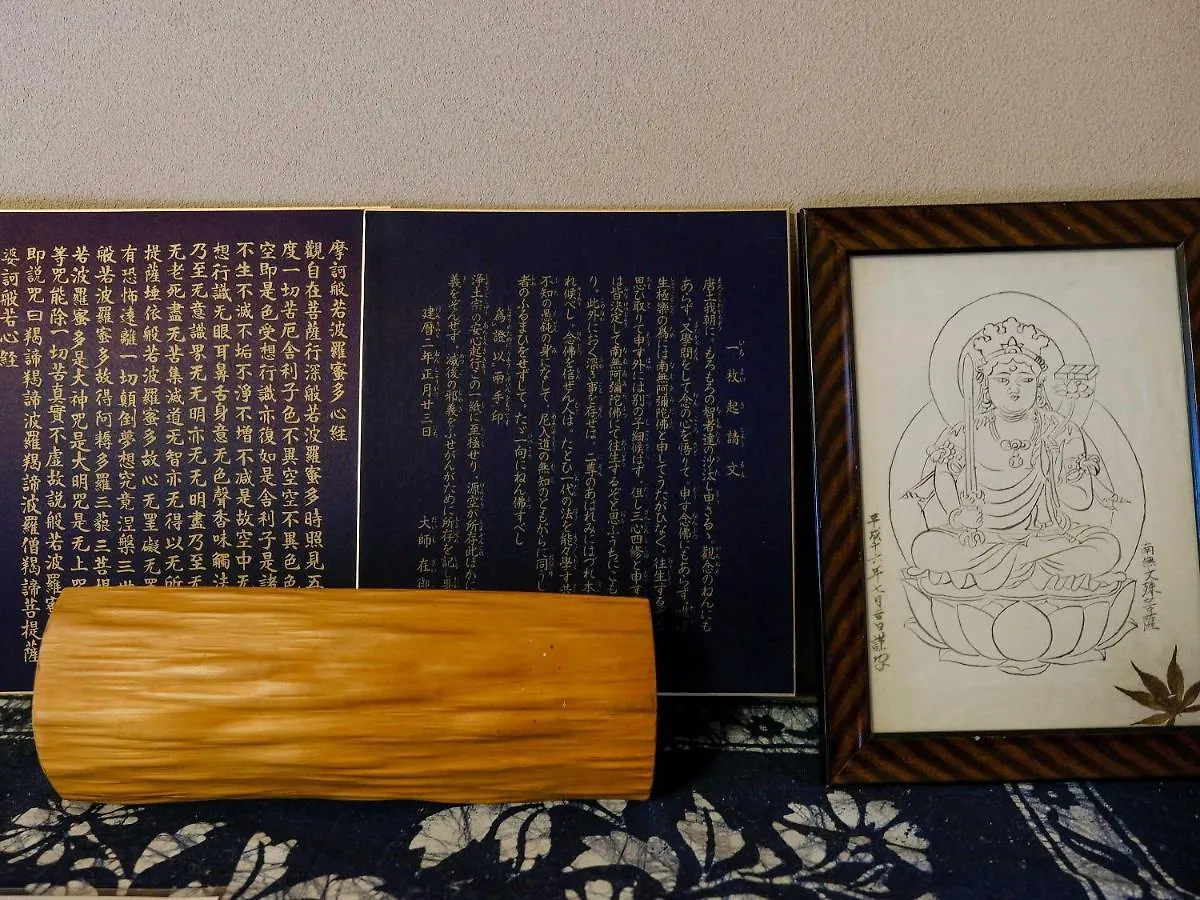 摩訶般若波羅蜜多心経
觀自在菩薩行深般若波羅蜜多時照見五
度一切苦厄舎利子色不異空空不異色色
空即是色受想行識亦復如是舎利子是諸
不生不滅不垢不淨不增不減是故空中无
想行識无眼耳鼻舌身意无色聲香味觸法
乃至无意識界无无明亦无无明盡乃至无
无老死盡无苦集滅道无智亦无得以无所
提薩埵依般若波羅蜜多故心无罣礙无罣
有恐怖遠離一切顛倒夢想究竟涅槃三世
般若波羅蜜多故得阿耨多羅三藐三菩提
若波羅蜜多是大神咒是大明咒是无上咒
等咒能除一切苦真實不虛故説般若波羅蜜
即説咒曰羯諦羯諦波羅羯諦波羅僧羯諦菩提薩
婆訶般若心経
一枚起請文
唐土我朝に、もろもろの智者達の沙汰し申さるゝ、觀念のねんにも
あらず、又學問をして念の心を悟りて、申す念佛にもあらず、唯
生極樂の為には南無阿彌陀佛と申してうたがひなく、往生する
思ひ取りて申す外には別の子細候はず、但し三心四修と申す
は皆決定して南無阿彌陀佛にて往生するぞと思ふうちにこも
り、此外におく深き事を存せば、二尊のあはれみにはづれ本
れ候べし、念佛を信ぜん人は、たとひ一代の法を能々學す共
不知の愚鈍の身になして、尼入道の無知のともがらに同うし
者のふるまひをせずして、たゞ一向にねん佛すべし
為證以兩手印
浄土宗の安心起行この一紙に至極せり、源空が所存此ほかに
義をぞんぜず、滅後の邪義をふせがんがために所存を記し畢
建暦二年正月廿三日
大師在御
南無文殊菩薩
平成十六年七月 日謹写